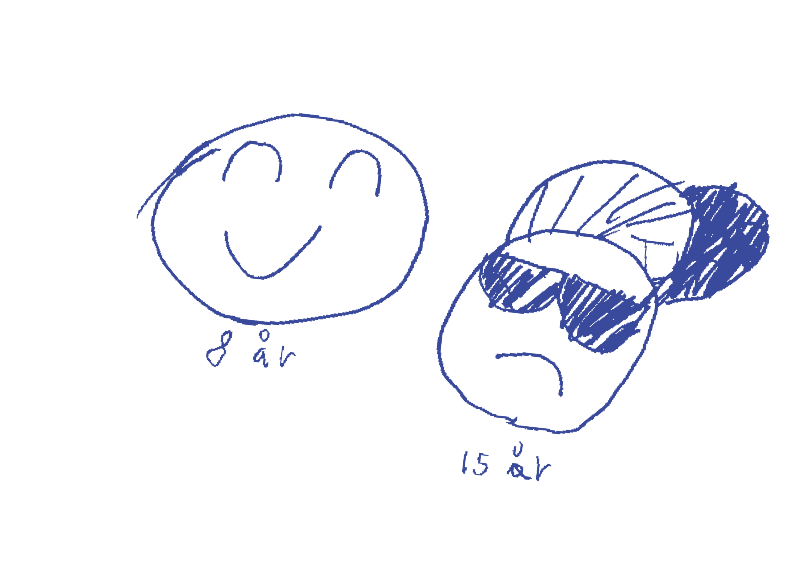 8 år
15 år